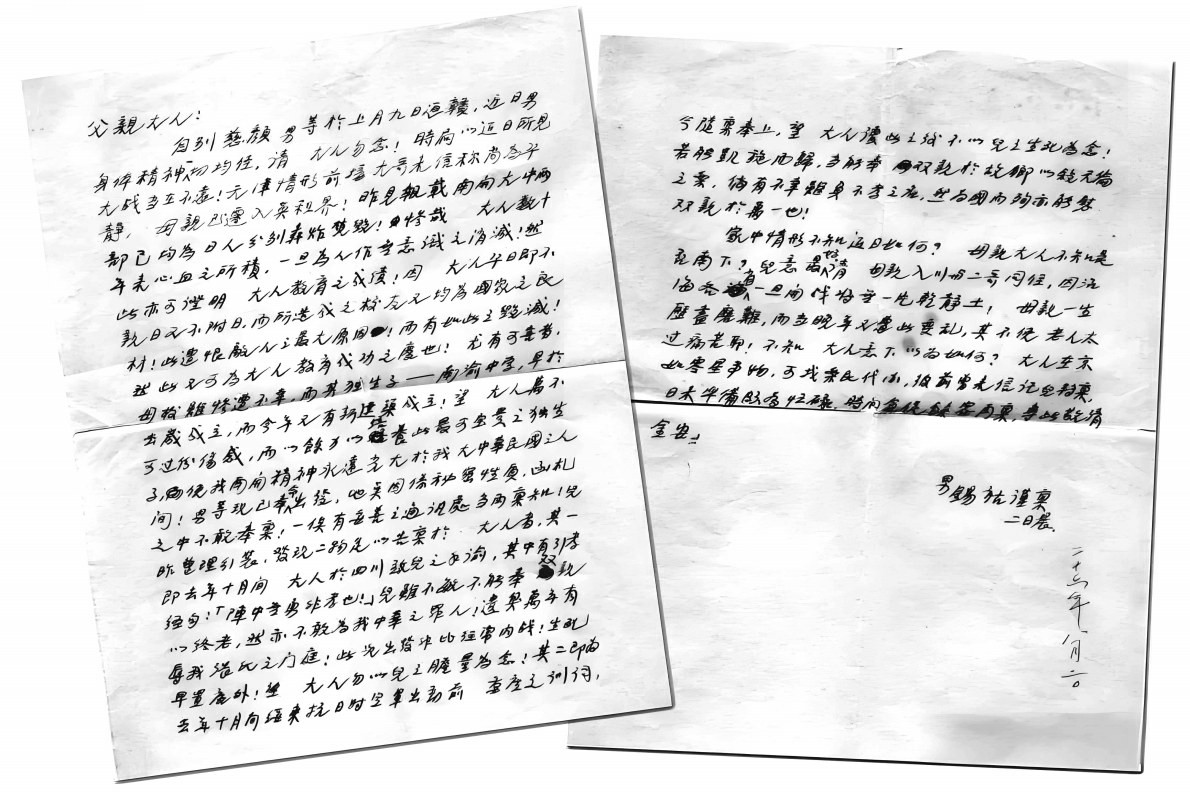 父親大人:
自別慈顏男等於上月九日返贛,近日男
身体精神均佳,請 大人勿念!時局以近日所見
大战当在不遠!天津情形前接大哥来信称尚為平
靜,母親已遷入英租界!昨見報載南開大中兩
部已均為日人分別轟炸焚毀!慘哉 大人數十
年来心血之所積,一旦為人作無意識之消滅!然
此亦可證明 大人教育之成績!因 大人平日即不
親日又不附日,而所造成之校友又均為國家之良
材!此遭恨敵人之最大原因!而有如此之毀滅!
然此又可為大人教育成功之慶也!尤有可喜者,
母校雖慘遭不幸,而其獨生子——南渝中学,早於
去歲成立,而今年又有新建築成立!望 大人萬不
可过份傷感,而以餘力以培養此最可宝貴之独生
子,而使我南開精神永遠光大於我大中華民國之人
間!男等現已奉命出發,地点因係秘密性質,函札
之中不敢奉禀!一俟有妥善之通訊處当再禀知!兒
昨整理行裝,發現二物足以告禀於 大人者,其一
即去年十月間 大人於四川致兒之手諭,其中有引孝
經句:「陣中無勇非孝也!」兒雖不敏不能奉双親
以終老,然亦不敢為我中華之罪人!遺臭萬年有
辱我張氏之门庭!此次出發非比往常内战!生死
早置度外!望 大人勿以兒之膽量為念!其二即為
去年十月間结束抗日时空軍出動前 委座之训词,
今隨禀奉上,望 大人讀此之後不以兒之生死為念!
若能凱旋而歸,当能奉双親於故鄉以叙天倫
之樂,倘有不幸雖負不孝之罪,然為國而殉亦能慰
双親於萬一也!
家中情形不知近日如何? 母親大人不知是
否南下?兒意最好請 母親入川与二哥同住,因沿
海各省一旦開战恐無一片乾静土! 母親一生
歷盡磨難,而至晚年又遭此变乱,其不使老人太
过痛苦耶!不知 大人意下以為如何? 大人在京
如需男事物,可找 代办,彼前曾来信記兒轉禀,
日来準備
金安!
男錫祜谨禀
二日晨
二十六年八月二日